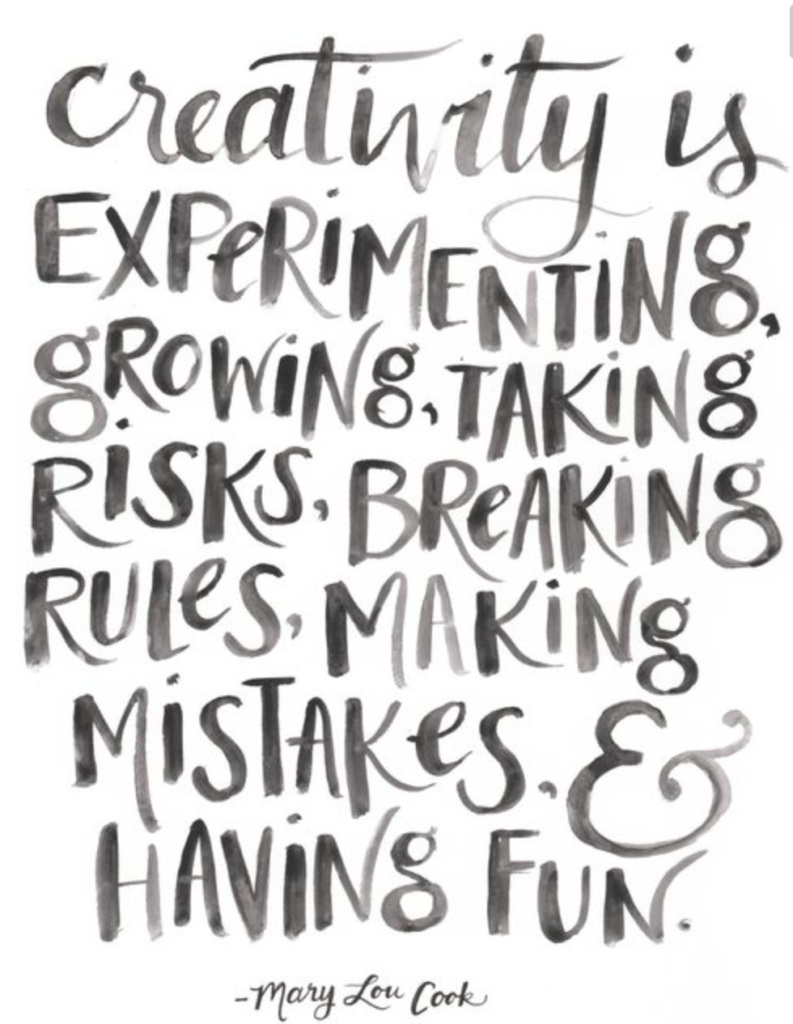 creativity is
EXPeRiMENTiNg,
gROWiNg, TAKiNg
RiSKS, BReAKiNg
RULeS, MAKiNg
MiSTAKeS, &
HAViNg FUN.
-Mary Lou Cook